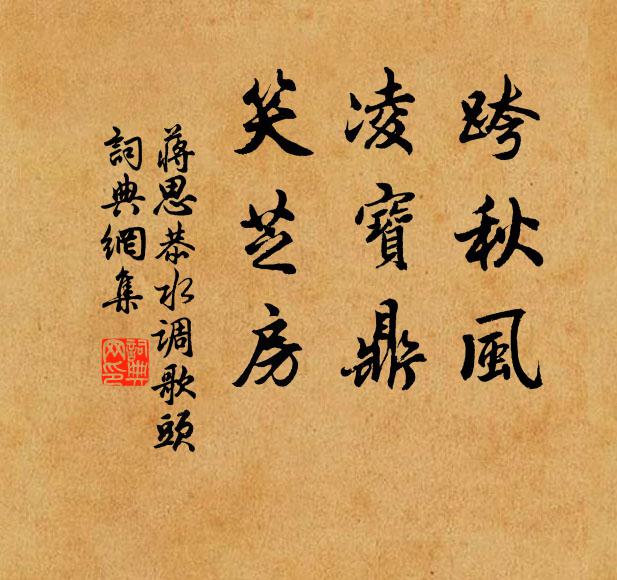 跨秋風
凌寶鼎
笑芝房
蔣思恭水调歌頭
詞典網集
詞典
网印